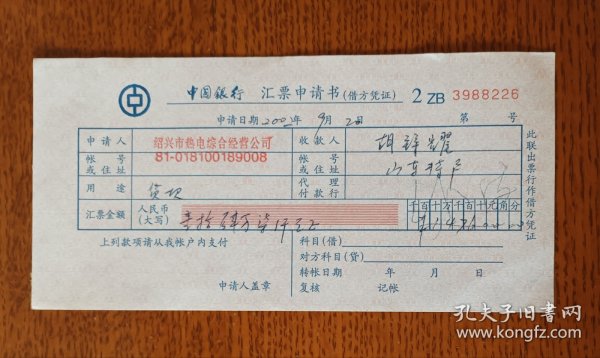 中国银行 汇票申请书(借方凭证) 2 ZB 3988226
申请日期2002年9月2日 第 号
申请人 绍兴市热电综合经营公司 收款人
帐号或住址 81-018100189008 帐号或住址 山东
用途 货款 代理付款行
汇票金额 人民币(大写) 千百十万千百十元角分
上列款项请从我帐户内支付 科目(借)
对方科目(贷)
转帐日期 年 月 日
申请人盖章 复核 记帐
此联出票行作借方凭证
孔夫子旧书网
www.kongfz.com